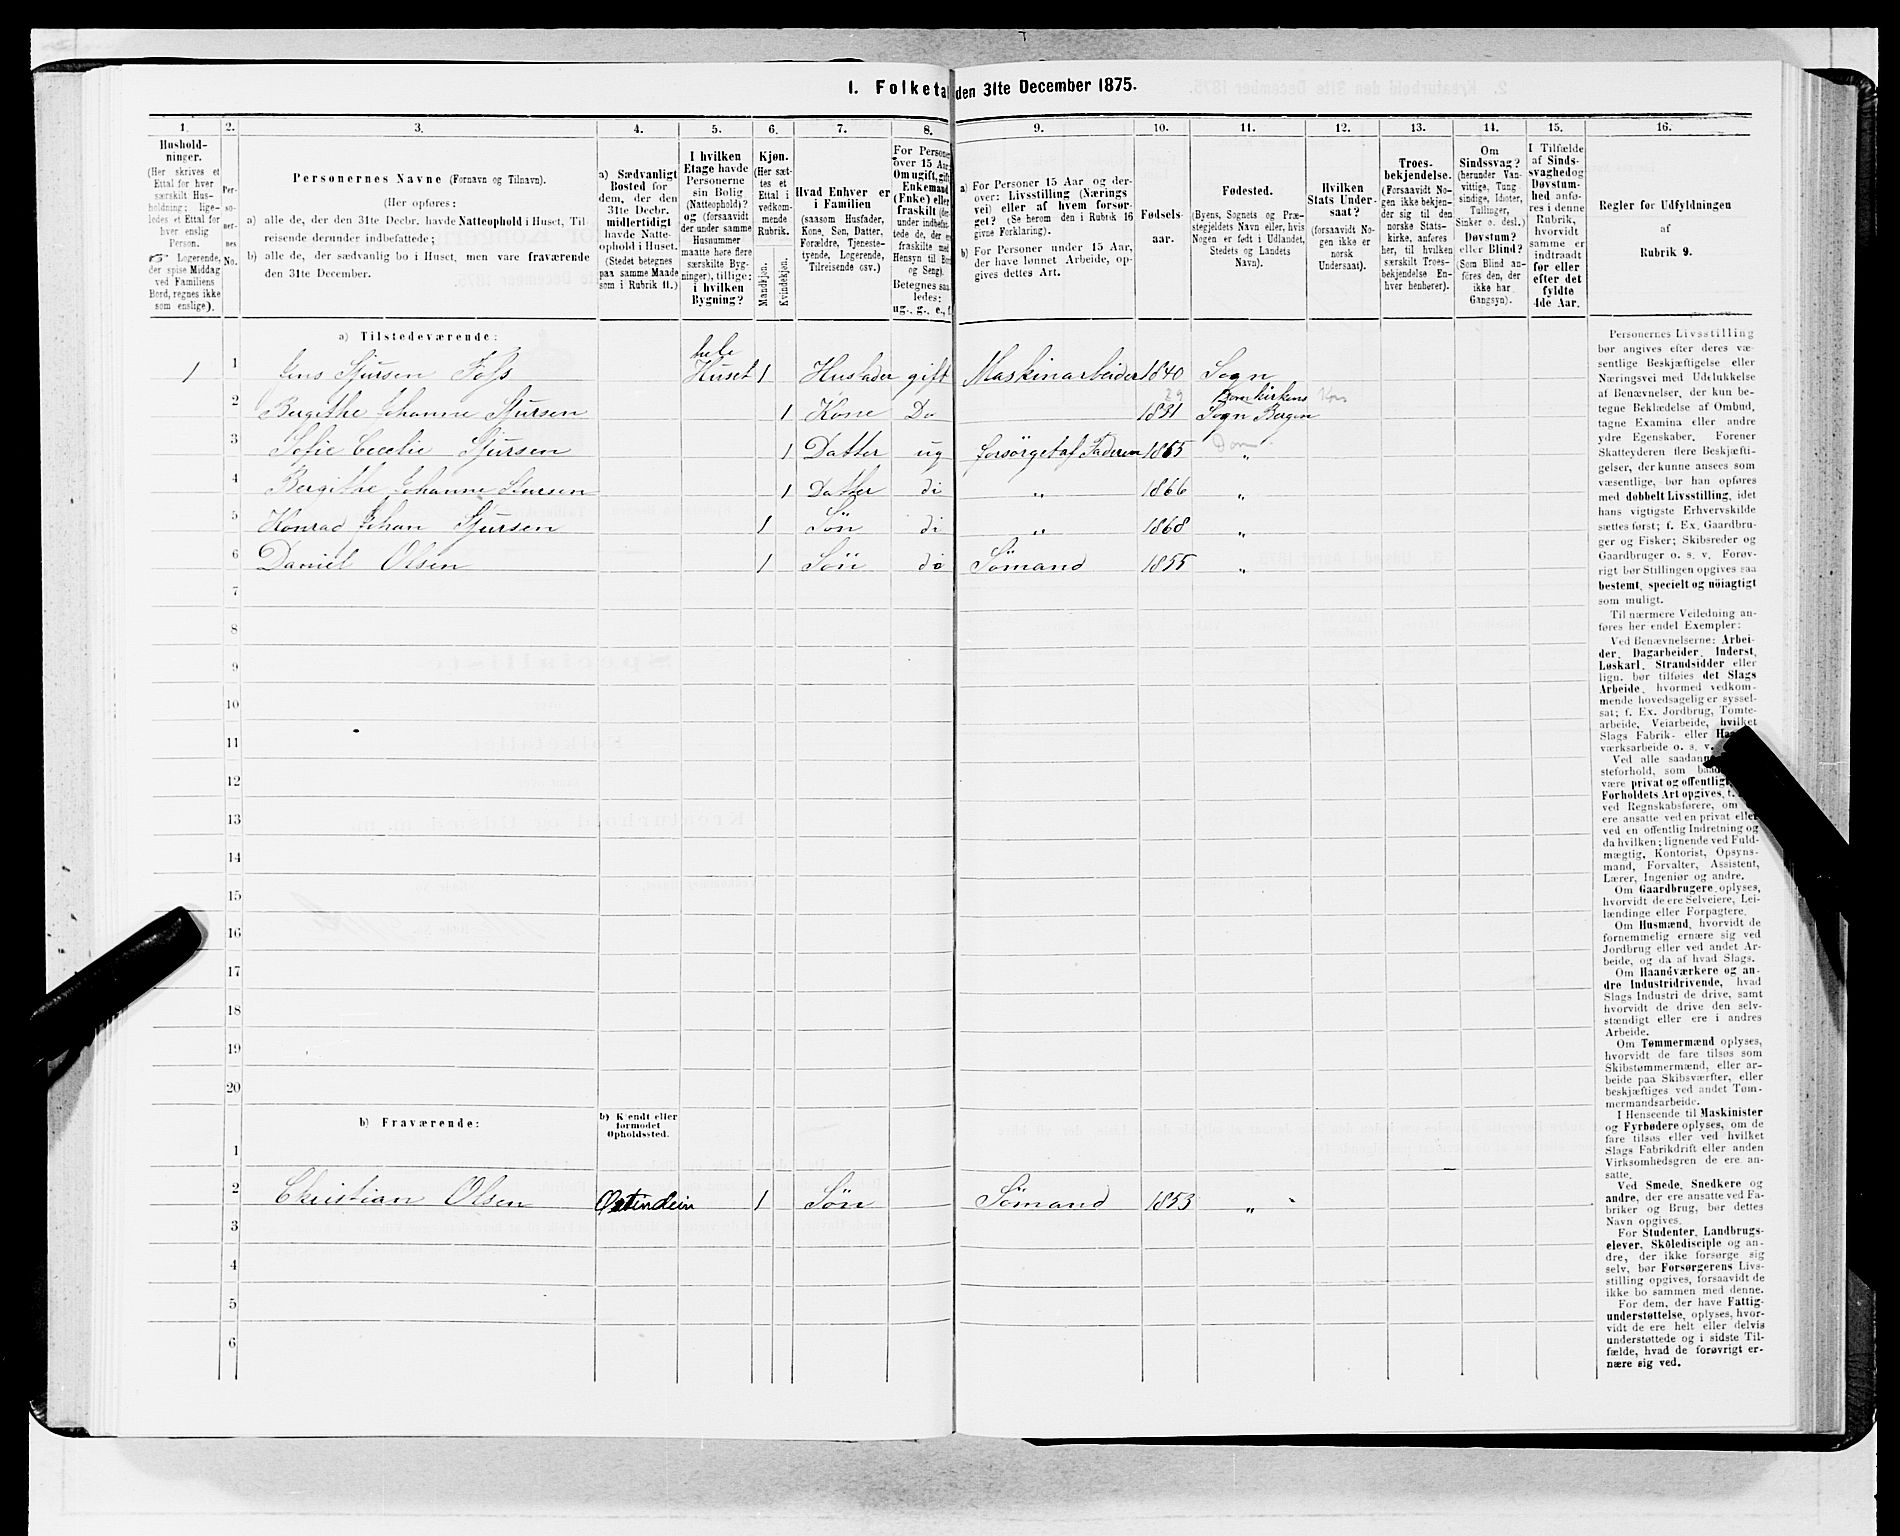 1. Folketa den 31te December 1875.
1. 2. 3. 4. 5. 6. 7. 8. 9. 10. 11. 12. 13. 14. 15. 16.
Hushold-
ninger.
(Her skrives et
Ettal for hver
særskilt Hus-
holdning; lige-
ledes et Ettal for
hver enslig
Person.
☞ Logerende,
der spise Middag
ved Familiens
Bord, regnes ikke
som enslige).
Per-
so-
ner-
nes
No.
Personernes Navne (Fornavn og Tilnavn).
(Her opføres:
a) alle de, der den 31te Decbr. havde Natteophold i Huset, Til
reisende derunder indbefattede;
b) alle de, der sædvanlig bo i Huset, men vare fraværende
den 31te December.
a) Sædvanligt
Bosted for
dem, der den
31te Decbr.
midlertidigt
havde Natte-
ophold i Huset.
(Stedet betegnes
paa samme Maade
som i Rubrik 11.)
I hvilken
Etage havde
Personerne
sin Bolig
(Natteophold)?
og (forsaavidt
der under samme
Husnummer
maatte høre flere
særskilte Byg-
ninger), tillige:
i hvilken
Bygning?
Kjøn.
(Her sæt-
tes et
Ettal i
vedkom-
mende
Rubrik.
Mandkjøn.
Kvindekjøn.
Hvad Enhver er
i Familien
(saasom Husfader,
Kone, Søn, Datter,
Forældre, Tjeneste-
tyende, Logerende,
Tilreisende osv.)
For Persone
over 15 Aar:
Om ugift, gift
Enkemand
(Enke) eller
fraskilt (der-
under indbefat-
tede de, der ere
fraskilte med
Hensyn til Bord
og Seng).
Betegnes saa
ledes:
ug., g., e., f.
a) For Personer 15 Aar og der-
over: Livsstilling (Nærings
vei) eller af hvem forsør-
get? (Se herom den i Rubrik 16
givne Forklaring).
b) For Personer under 15 Aar,
der have lønnet Arbeide, op-
gives dettes Art.
Fødsels-
aar.
Fødested.
(Byens, Sognets og Præ-
stegjeldets Navn eller, hvis
Nogen er født i Udlandet,
Stedets og Landets
Navn).
Hvilken
Stats Under-
saat?
(forsaavidt No-
gen ikke er
norsk
Undersaat).
Troes-
bekjendelse.
(Forsaavidt No-
gen ikke bekjen-
der sig til den
norske Stats-
kirke, anføres
her, til hvilken
særskilt Troes-
bekjendelse En-
hver henhører).
Om
Sindssvag?
(herunder Van-
vittige, Tung
sindige, Idioter,
Tullinger,
Sinker o. desl.)
Døvstum?
eller Blind?
(Som Blind an-
føres den, der
ikke har
Gangsyn).
I Tilfælde
af Sinds-
svaghedog
Døvstum-
hed anfø-
res i denne
Rubrik,
hvorvidt
samme er
indtraadt
før eller
efter det
fyldte
4de Aar.
Regler for Udfyldningen
af
Rubrik 9.
a) Tilstedeværende:
hele
1 1 Jens Sjursen Foss Huset 1 Husfader gift Maskinarbeider 1840 Sogn
29 Domkirkens
2 Bergithe Johanne Sjursen 1 Kone Do 1831 Sogn Bergen
3 Sofie Cecelie Sjursen 1 Datter ug forsörget af Faderen 1865 Dom "
4 Bergithe Johanne Sjursen 1 Datter di " 1866 "
5 Konrad Johan Sjursen 1 Sön di " 1868 "
6 Daniel Olsen 1 Sön do Sömand 1855 "
7
8
9
10
11
12
13
14
15
16
17
18
19
20
b) Fraværende:
b) Kjendt eller
formodet
Opholdssted.
1
2 Christian Olsen Ostindein 1 Sön Sömand 1853 "
3
4
5
6
Personernes Livsstilling
bør angives efter deres væ-
sentlige Beskjæftigelse eller
Næringsvei med Udelukkelse
af Benævnelser, der kun be-
tegne Beklædelse af Ombud,
tagne Examina eller andre
ydre Egenskaber. Forener
Skatteyderen flere Beskjæfti-
gelser, der kunne ansees som
væsentlige, bør han opføres
med dobbelt Livsstilling, idet
hans vigtigste Erhvervskilde
sættes først; f. Ex. Gaardbru-
ger og Fisker; Skibsreder og
Gaardbruger o. s. v. Forøv-
rigt bør Stillingen opgives saa
bestemt, specielt og nöiagtigt
som muligt.
Til nærmere Veiledning an-
føres her endel Exempler:
Ved Benævnelserne: Arbei-
der, Dagarbeider, Inderst,
Løskarl, Strandsidder eller
lign. bør tilføies det Slags
Arbeide, hvormed vedkom-
mende hovedsagelig er syssel-
sat; f. Ex. Jordbrug, Tomte-
arbeide, Veiarbeide, hvilket
Slags Fabrik- eller
værksarbeide o. s. v.
Ved alle saadan
steforhold, som
være privat og offentlig
Forholdets Art opgives,
ved Regnskabsførere, om
ere ansatte ved en privat eller
ved en offentlig Indretning og
da hvilken; lignende ved Fuld-
mægtig, Kontorist, Opsyns-
mand, Forvalter, Assistent,
Lærer, Ingeniør og andre.
Om Gaardbrugere oplyses,
hvorvidt de ere Selveiere, Lei-
lændinge eller Forpagtere.
Om Husmænd, hvorvidt de
fornemmelig ernære sig ved
Jordbrug eller ved andet Ar-
beide, og da af hvad Slags.
Om Haandværkere og an-
dre Industridrivende, hvad
Slags Industri de drive, samt
hvorvidt de drive den selv-
stændigt eller ere i andres
Arbeide.
Om Tømmermænd oplyses,
hvorvidt de fare tilsøs som
Skibstømmermænd, eller ar-
beide paa Skibsværfter, eller
beskjæftiges ved andet Tøm-
mermandsarbeide.
I Henseende til Maskinister
og Fyrbødere oplyses, om de
fare tilsøs eller ved hvilket
Slags Fabrikdrift eller anden
Virksomhedsgren de ere an-
satte.
Ved Smede, Snedkere og
andre, der ere ansatte ved Fa-
briker og Brug, bør dettes
Navn opgives.
For Studenter, Landbrugs-
elever, Skoledisciple og an-
dre, der ikke forsørge sig
selv, bør Forsørgerens Livs-
stilling opgives, forsaavidt de
ikke bo sammen med denne.
For dem, der have Fattig-
understøttelse, oplyses, hvor-
vidt de ere helt eller delvis
understøttede og i sidste Til-
fælde, hvad de forøvrigt er-
nære sig ved.